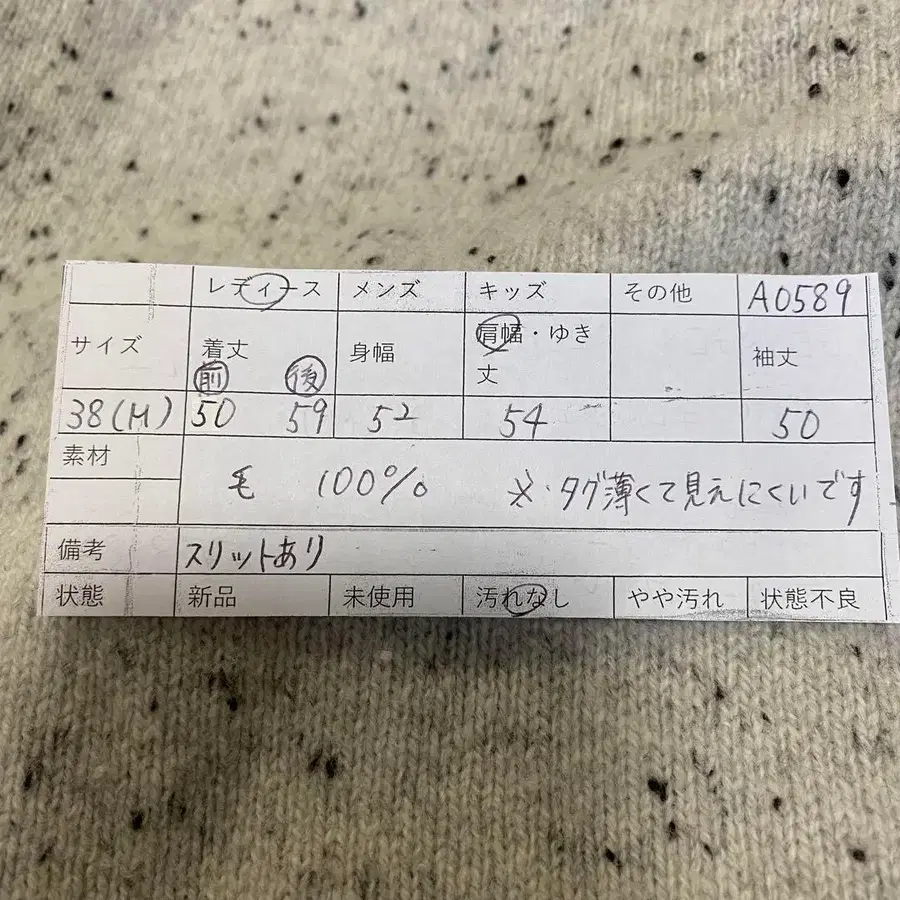 レディース メンズ キッズ その他 A0589
サイズ 着丈 身幅 肩幅・ゆき丈 袖丈
前 後
38(M) 50 59 52 54 50
素材 毛 100% ※タグ薄くて見えにくいです
備考 スリットあり
状態 新品 未使用 汚れなし やや汚れ 状態不良